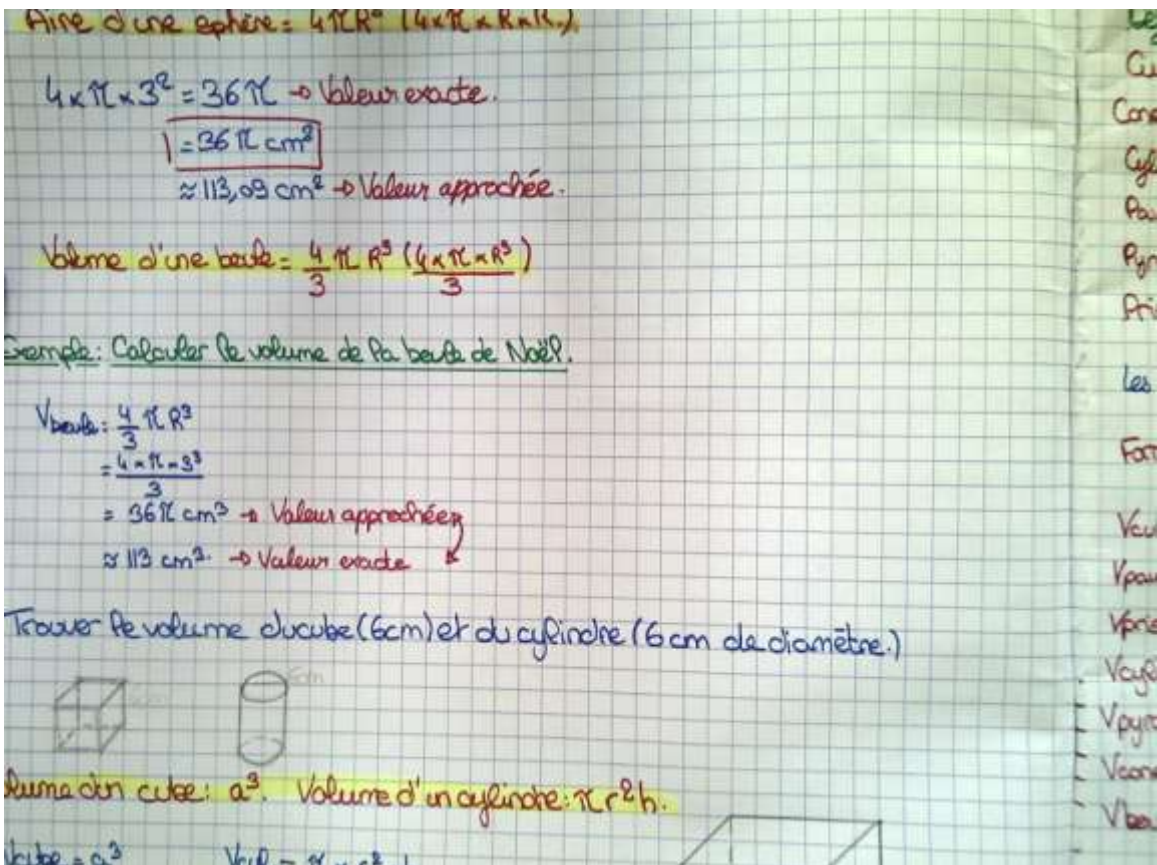 Aire d'une sphère = 4πR² (4×π×R×R.)
4×π×3² = 36π → Valeur exacte.
= 36π cm²
≈ 113,09 cm² → Valeur approchée.
Volume d'une boule = 4/3 π R³ (4×π×R³/3)
Exemple: Calculer le volume de la boule de Noël.
Vboule: 4/3 π R³
= 4×π×3³/3
= 36π cm³ → Valeur approchée
≈ 113 cm³. → Valeur exacte
Trouver le volume du cube (6cm) et du cylindre (6 cm de diamètre.)
6cm
lume d'un cube: a³. Volume d'un cylindre: π r² h.
Vcube = a³
Les